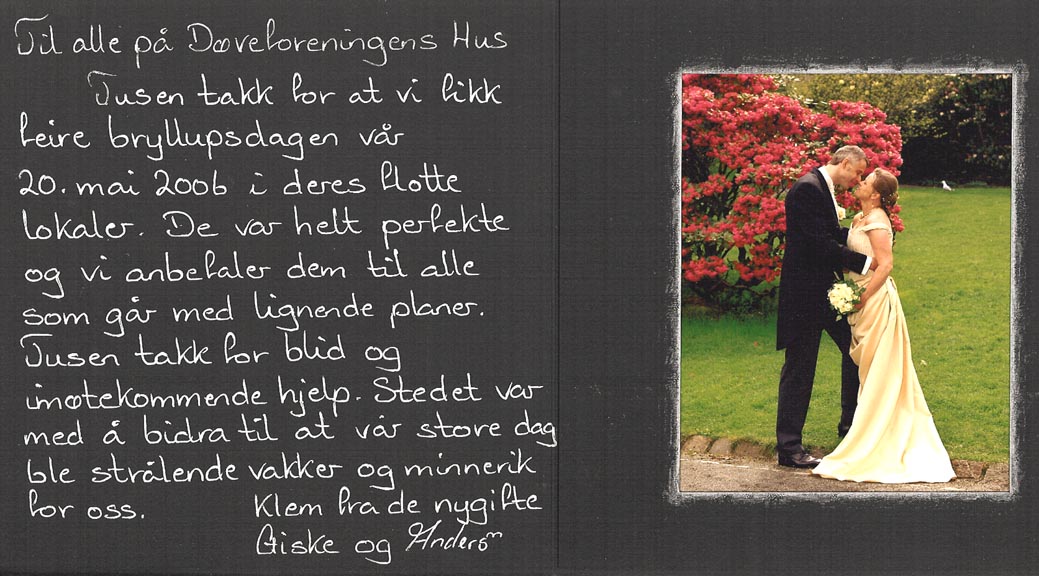 Til alle på Døveforeningens Hus
Tusen takk for at vi fikk
feire bryllupsdagen vår
20. mai 2006 i deres flotte
lokaler. De var helt perfekte
og vi anbefaler dem til alle
som går med lignende planer.
Tusen takk for blid og
imøtekommende hjelp. Stedet var
med å bidra til at vår store dag
ble strålende vakker og minnerik
for oss. Klem fra de nygifte
Giske og Anders